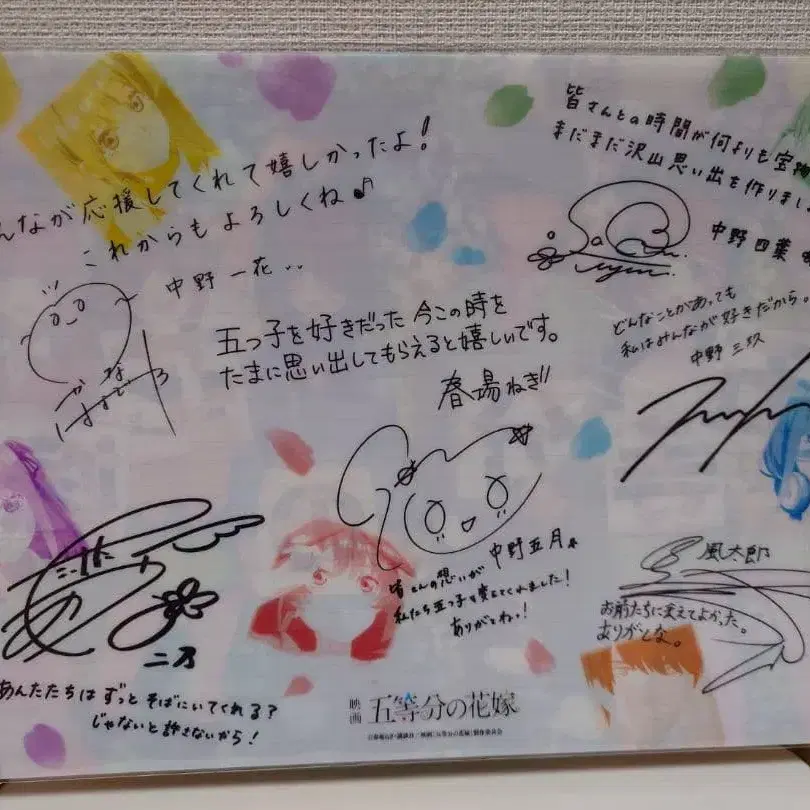 んなが応援してくれて嬉しかったよ!
これからもよろしくね♪
中野 一花
皆さんとの時間が何よりも宝物
まだまだ沢山思い出を作りまし
中野四葉
どんなことがあっても
私はみんなが好きだから。
中野 三玖
五つ子を好きだった 今この時を
たまに思い出してもらえると嬉しいです。
春場ねぎ!!
中野五月
皆さんの想いが
私たち五つ子を変えてくれました!
ありがとねっ!
風太郎
お前たちに変えてよかった。
ありがとな。
二乃
あんたたちは ずっと そばにいてくれる?
じゃないと許さないから!
映画 五等分の花嫁